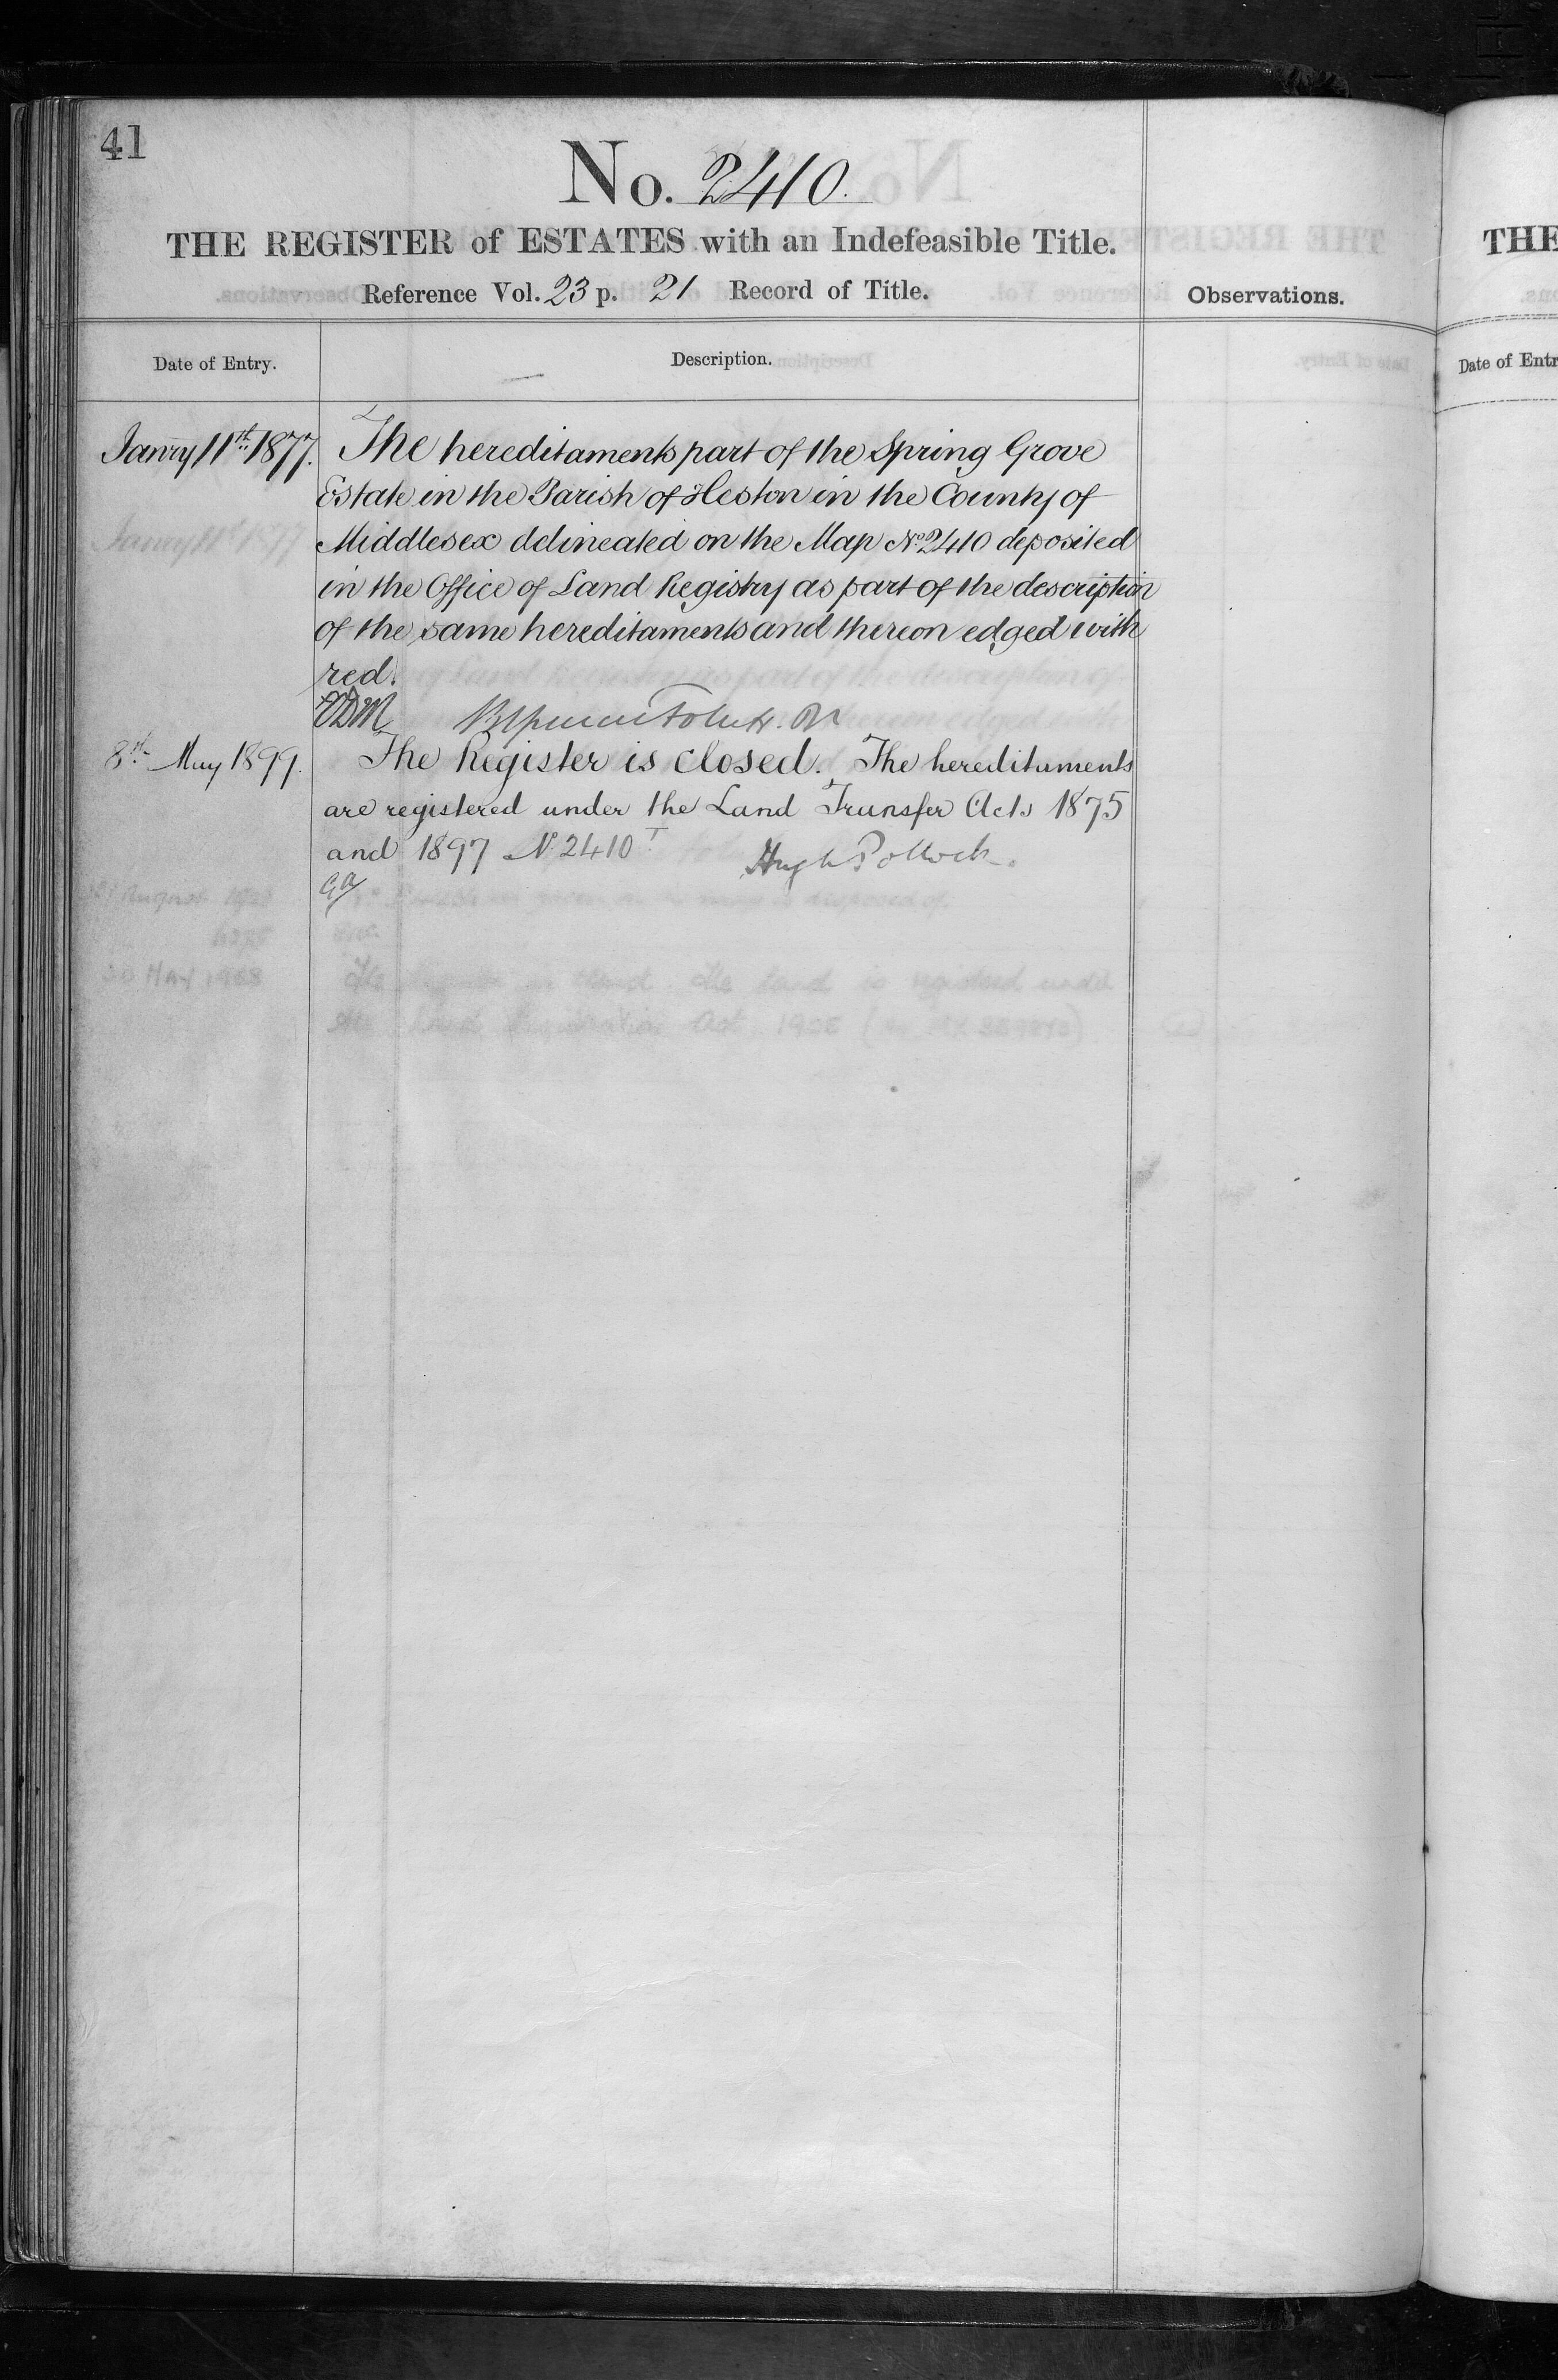 41
No. 2410.
THE REGISTER of ESTATES with an Indefeasible Title.
Reference Vol. 23 p. 21 Record of Title.
Observations.
Date of Entry.
Description.
Janry 11th 1877. The hereditaments part of the Spring Grove
Estate in the Parish of Heston in the County of
Middlesex delineated on the Map No. 2410 deposited
in the Office of Land Registry as part of the description
of the same hereditaments and thereon edged with
red.
8th May 1899. The Register is closed. The hereditaments
are registered under the Land Transfer Acts 1875
and 1897 No. 2410 T.
Hugh Pollock.
THE
Date of Entr